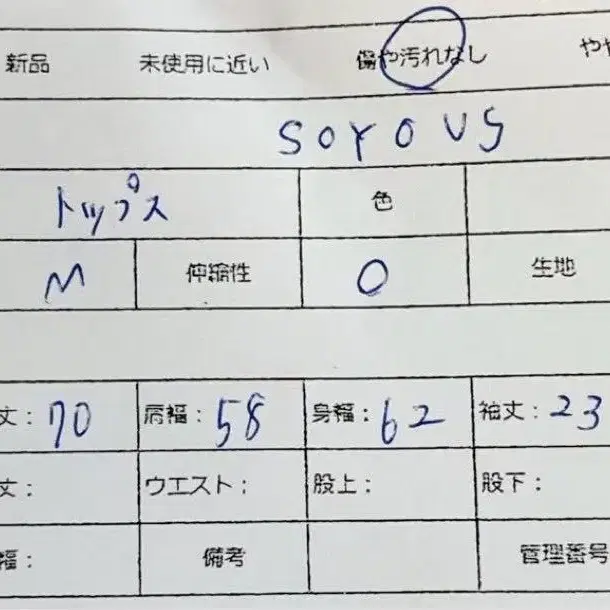 新品 未使用に近い 傷や汚れなし やや
SOYOUS
トップス 色
M 伸縮性 O 生地
丈: 70 肩幅: 58 身幅: 62 袖丈: 23
丈: ウエスト: 股上: 股下:
幅: 備考 管理番号